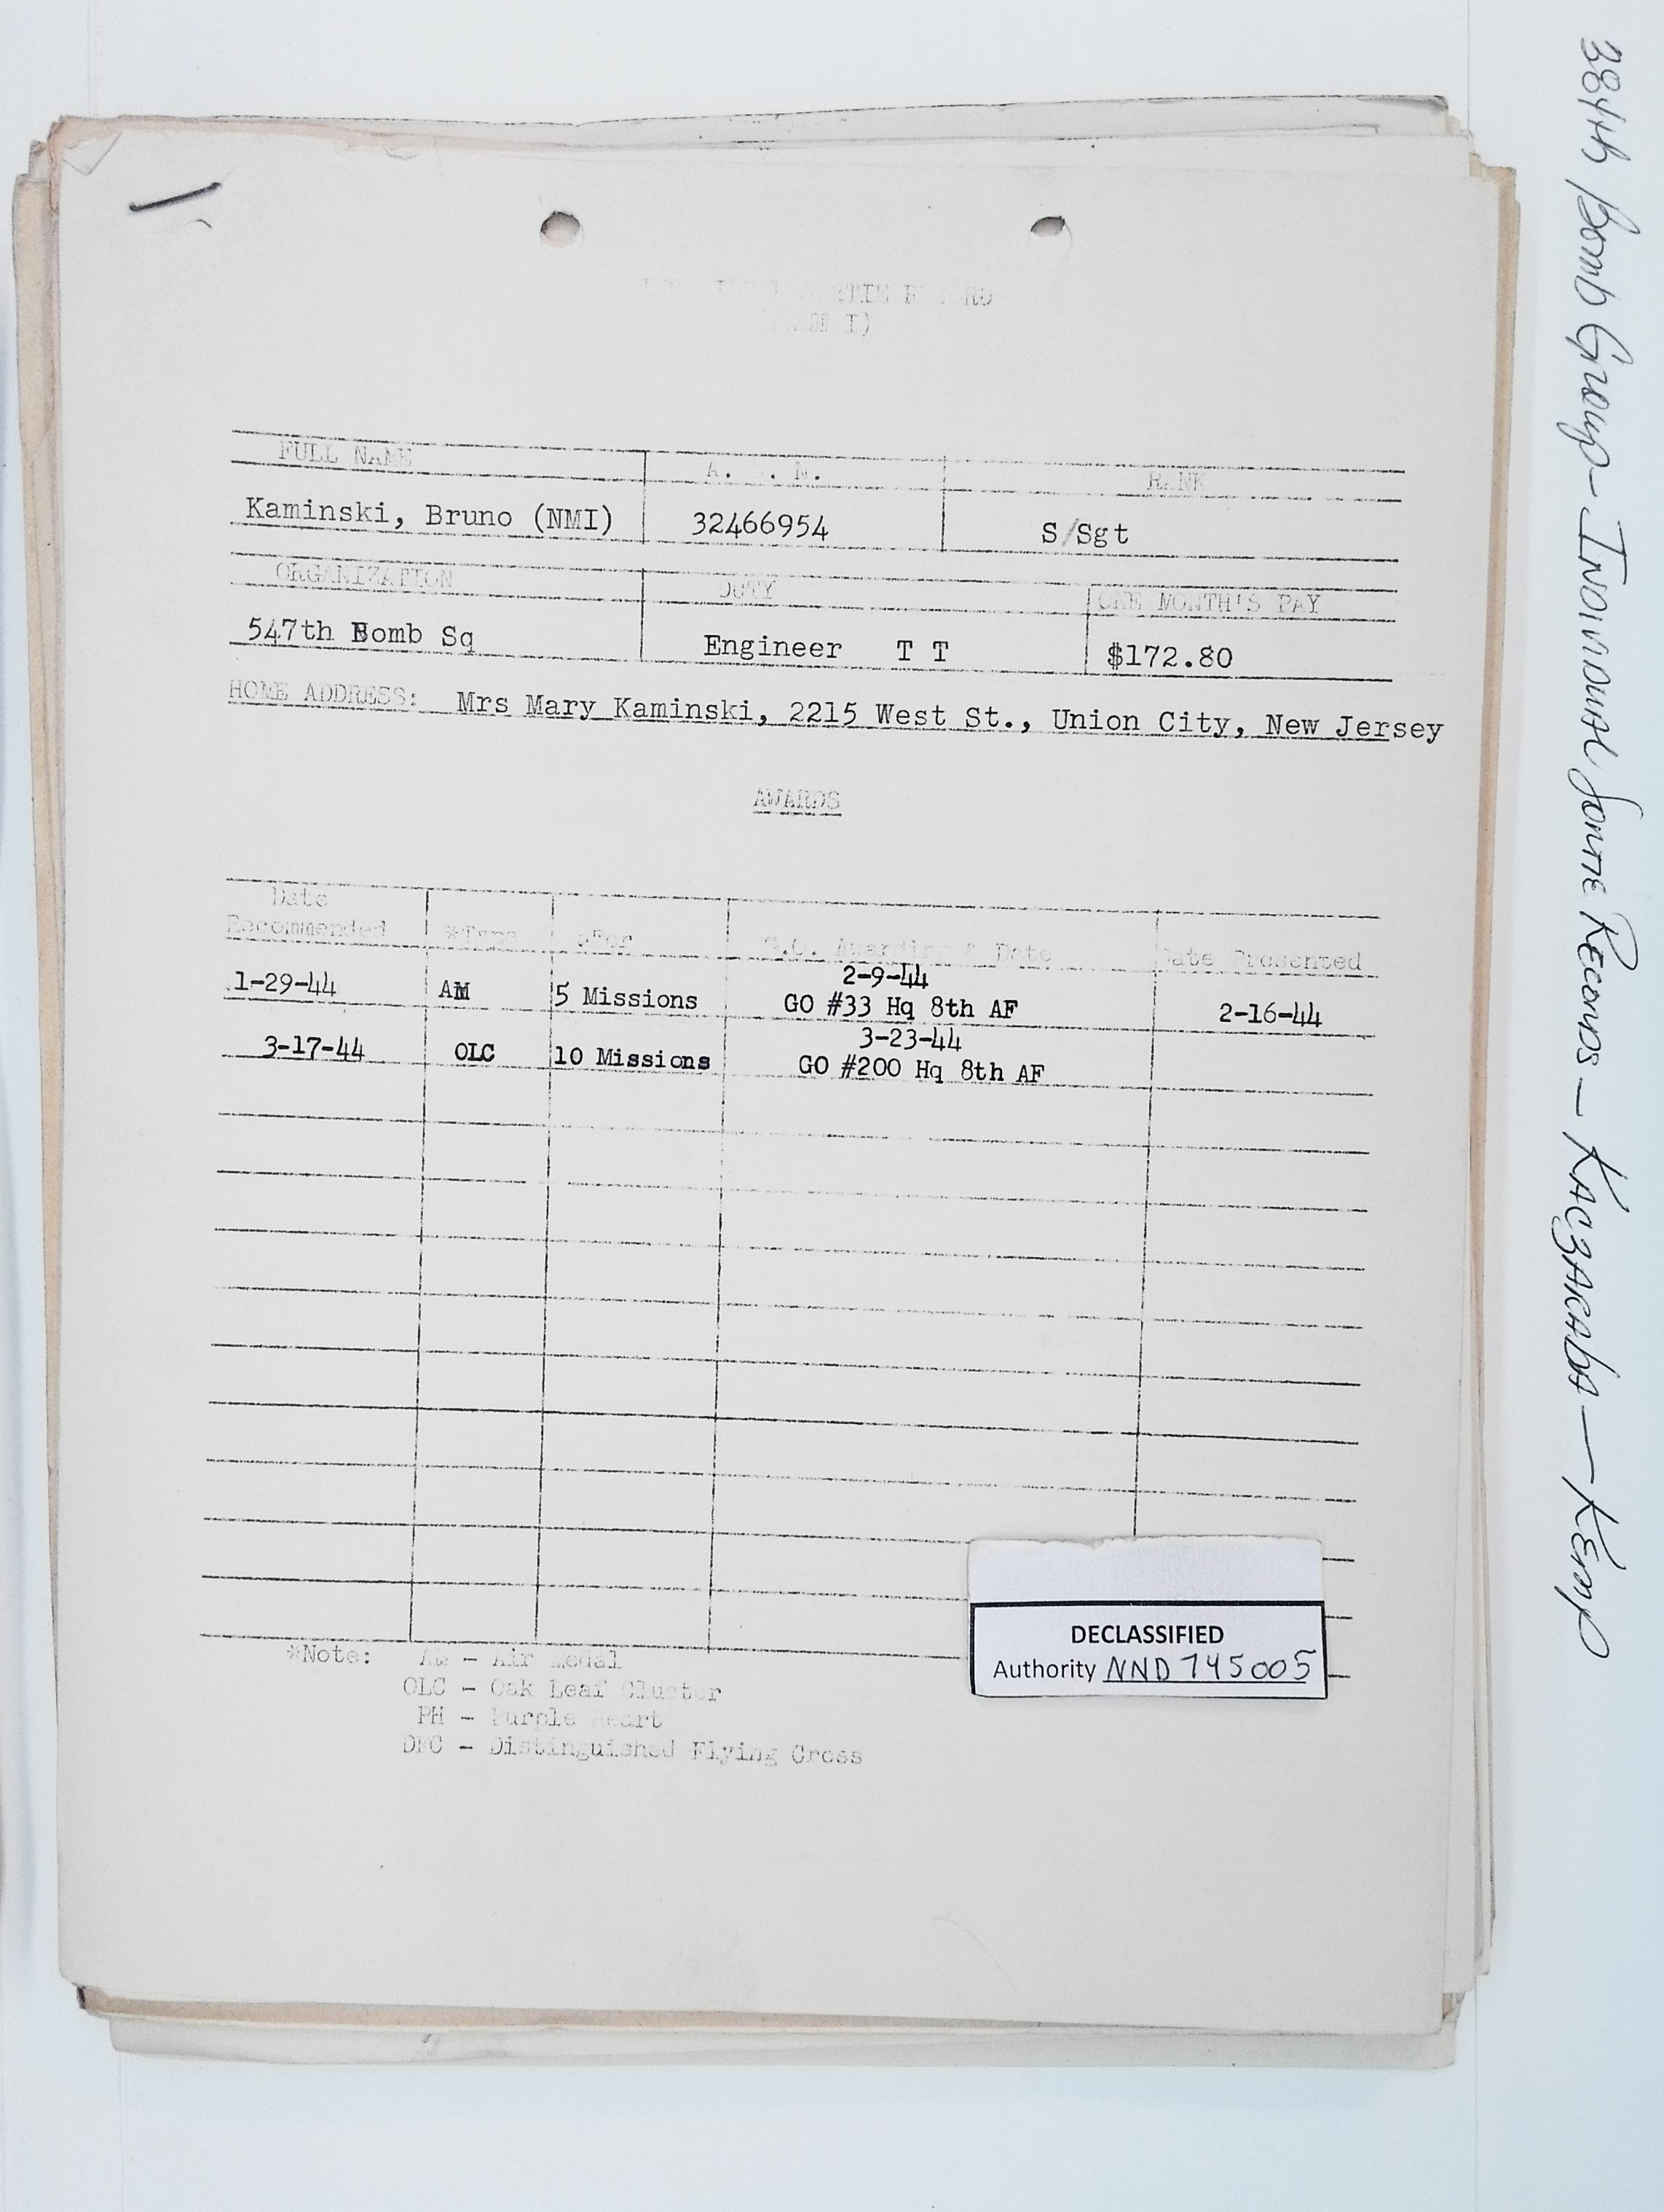 RECORD
I)
FULL NAME A. S. N. RANK
Kaminski, Bruno (NMI) 32466954 S/Sgt
ORGANIZATION DUTY ONE MONTH'S PAY
547th Bomb Sq Engineer T T $172.80
HOME ADDRESS: Mrs Mary Kaminski, 2215 West St., Union City, New Jersey
AWARDS
Date
Recommended *Type *For G.O. Awarding & Date Date Presented
2-9-44
1-29-44 AM 5 Missions GO #33 Hq 8th AF 2-16-44
3-23-44
3-17-44 OLC 10 Missions GO #200 Hq 8th AF
*Note: AM - Air Medal
OLC - Oak Leaf Cluster
PH - Purple Heart
DFC - Distinguished Flying Cross
DECLASSIFIED
Authority NND 745005
384th Bomb Group - Individual Sortie Records - Kaczaraba - Kemp